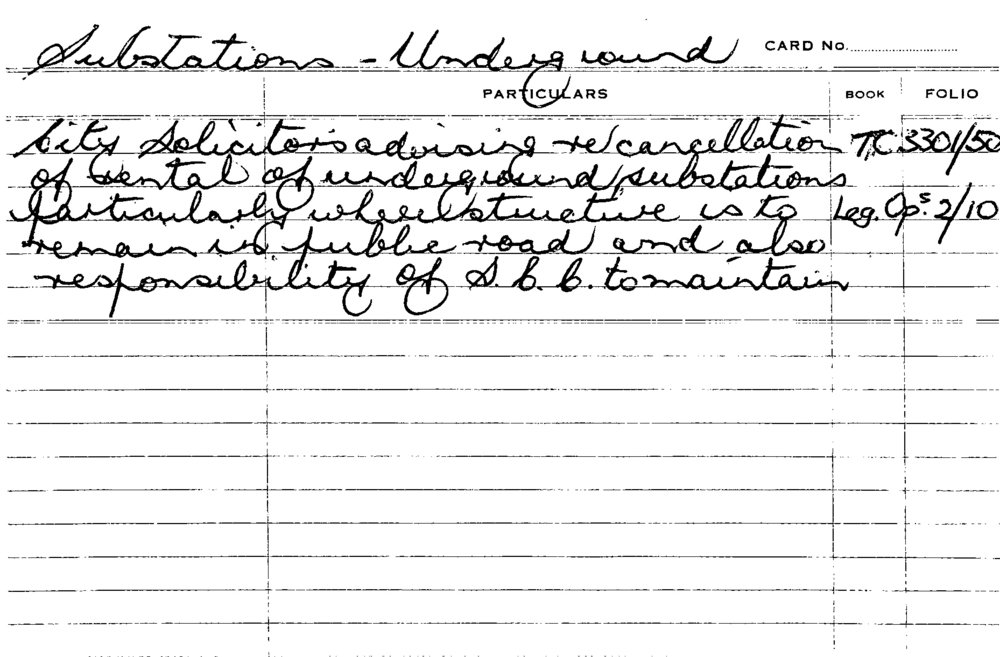 Substations - Underground CARD No.
PARTICULARS BOOK FOLIO
City Solicitors advising re cancellation TC 3301/50
of rental of underground substations
particularly where structure is to Leg. Ops. 2/10
remain in public road and also
responsibility of S.C.C. to maintain